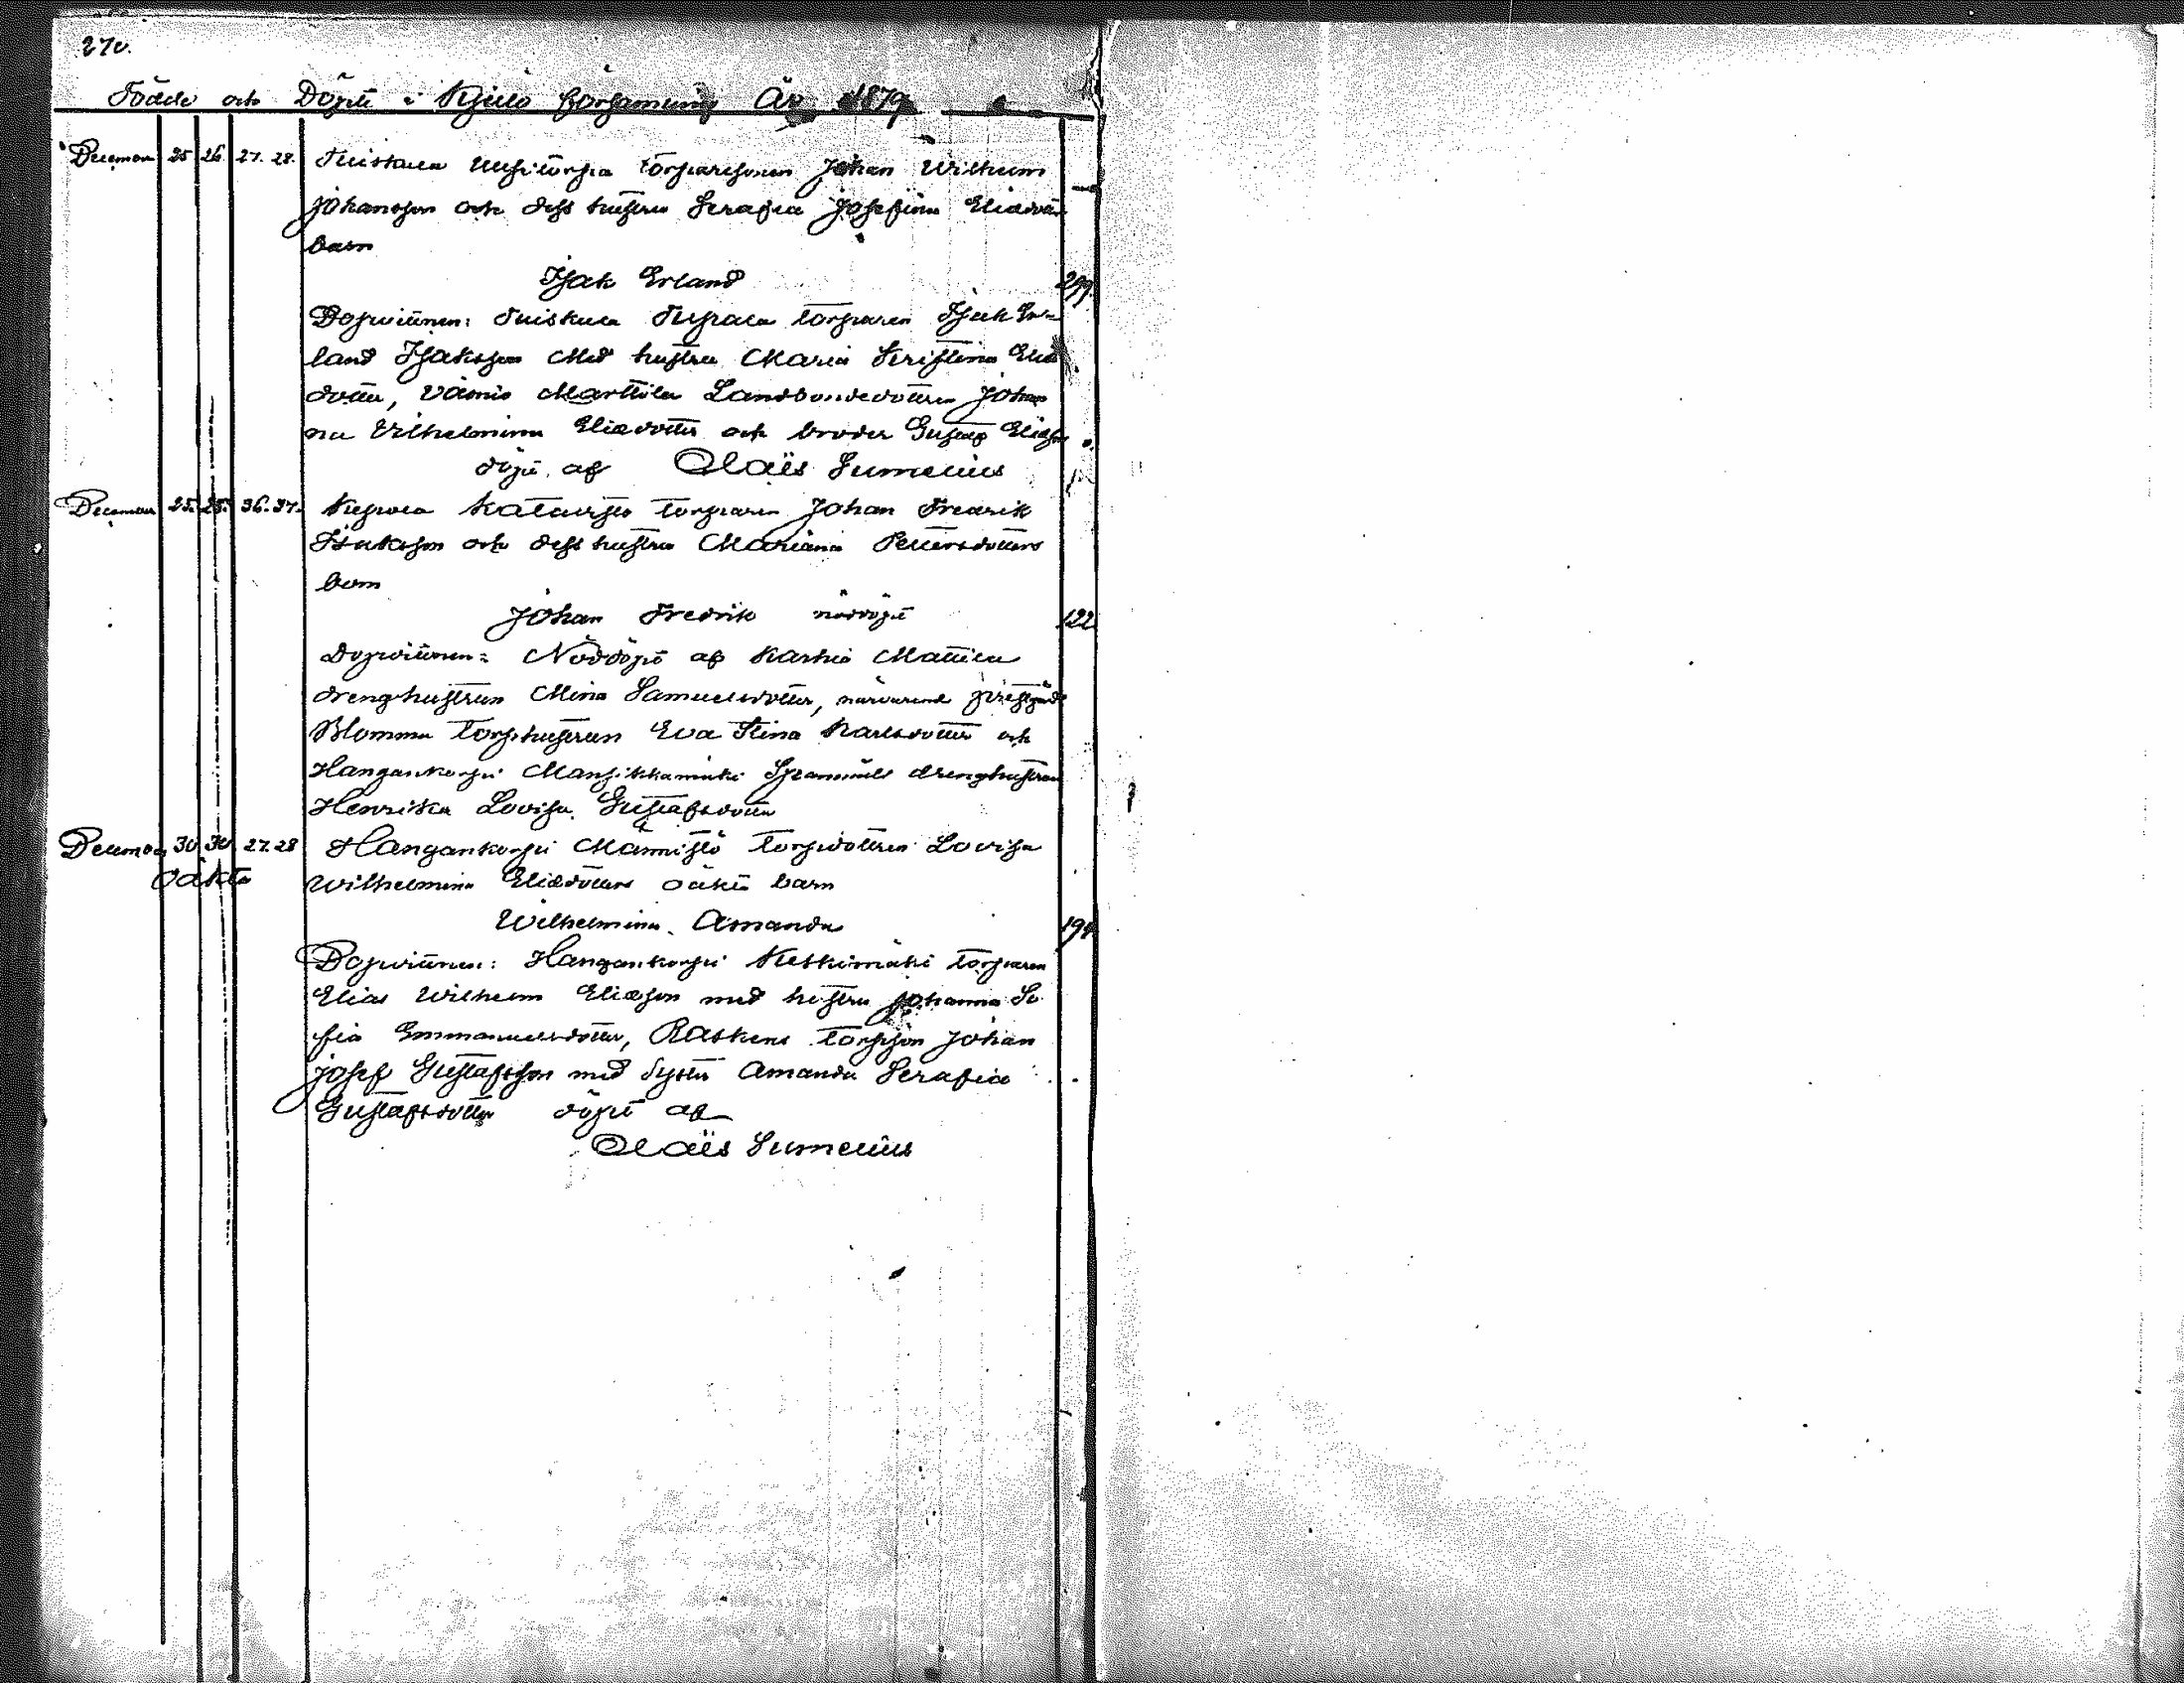 270.
Födde och Döpte i Kjulo församling År 1879
December 25 26. 27. 28. Tuiskula Uusitorpa torparesonen Johan Wilhelm
Johansson och dess hustru Serafia Josefina Eliædotters
barn
Isak Erland 299.
Dopvittnen: Tuiskula torparen Isak Er-
land Isaksson Med hustru Maria Kristina Eliæ
dotter, Vämiö Marttila Landbondedottren Johan
na Vilhelmina Eliædotter och broder Gustaf Eliæson
döpt af Claës Sumelius
December 25. 25. 36. 37. Kepola Kataisto torparen Johan Fredrik
Isaksson och dess hustru Mariana Pettersdotters
barn
Johan Fredrik nöddöpt 122
Dopvittnen: Nöddöpt af Karhia Mattila
drenghustrun Mina Samuelsdotter, närvarande prestgårds
Blomma torphustrun Eva Stina Karlsdotter och
Hangankorpi Mansikkamäki drenghustrun
Henrika Lovisa Gustafsdotter
December 30 30 27. 28 Hangankorpi Männistö torpdottren Lovisa
oäkta Wilhelmina Eliædotters oäkta barn
Wilhelmina Amanda 194
Dopvittnen: Hangankorpi Keskimäki torparen
Elias Wilhelm Eliæson med hustru Johanna So
fia Emmanuelsdotter, Raskens torpson Johan
Josef Gustafsson med Syster Amanda Serafia
Gustafsdotter döpt af
Claës Sumelius